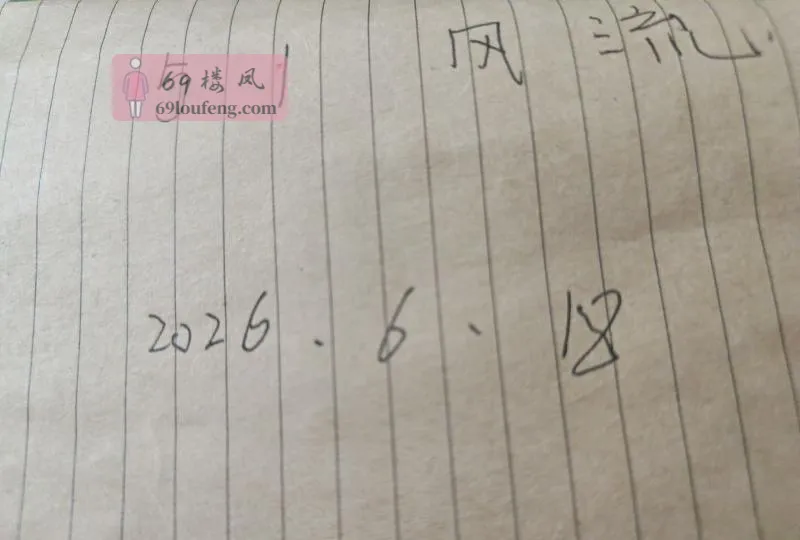 风流
69楼凤
69loufeng.com
2026.6.18